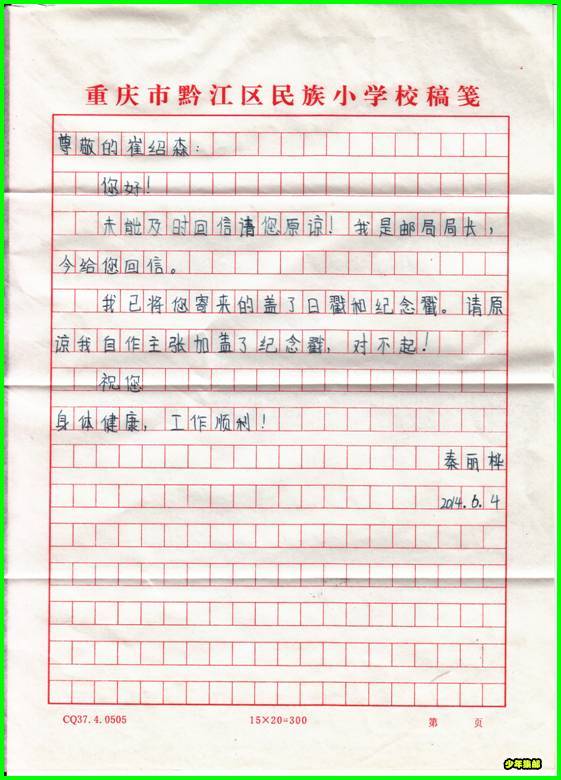 重庆市黔江区民族小学校稿笺
尊敬的崔绍森:
您好!
未能及时回信请您原谅!我是邮局局长,
今给您回信。
我已将您寄来的盖了日戳加纪念戳。请原
谅我自作主张加盖了纪念戳,对不起!
祝您
身体健康,工作顺利!
秦丽桦
2014.6.4
CQ37.4.0505 15×20=300 第 页
少年集邮